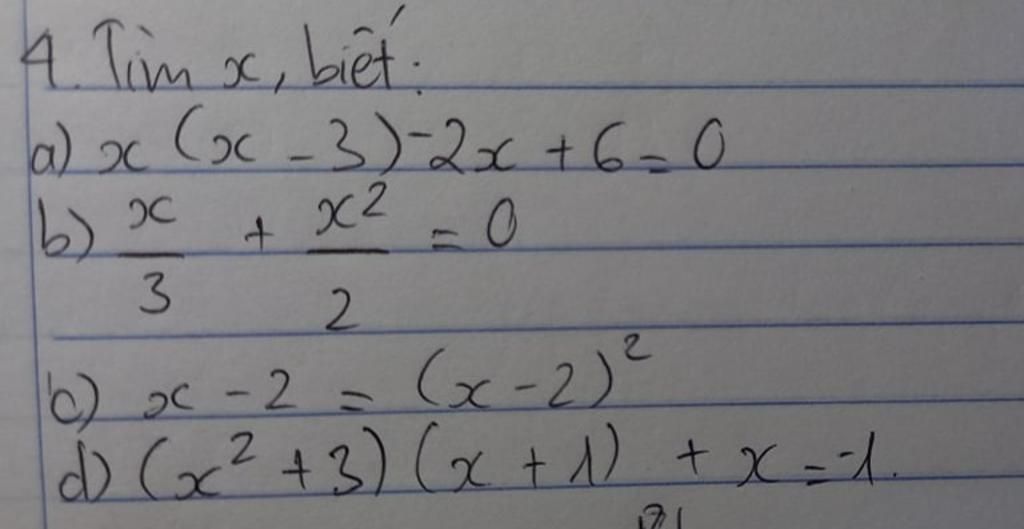 4. Tìm x, biết:
a) x (x - 3) - 2x + 6 = 0
b) x/3 + x²/2 = 0
c) x - 2 = (x - 2)²
d) (x² + 3) (x + 1) + x = -1.